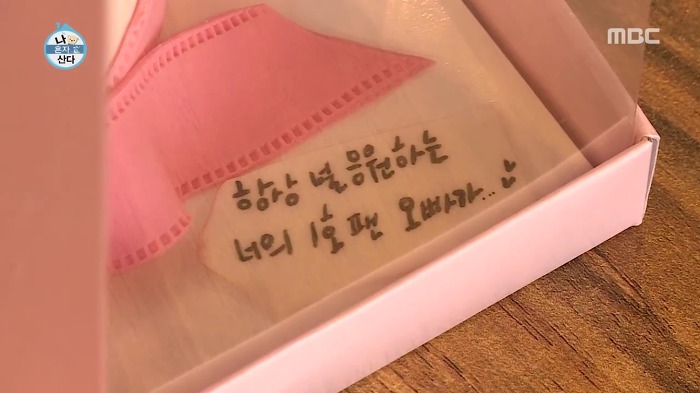 나
혼자
산다
MBC
항상 널 응원하는
너의 1호 팬 오빠가...